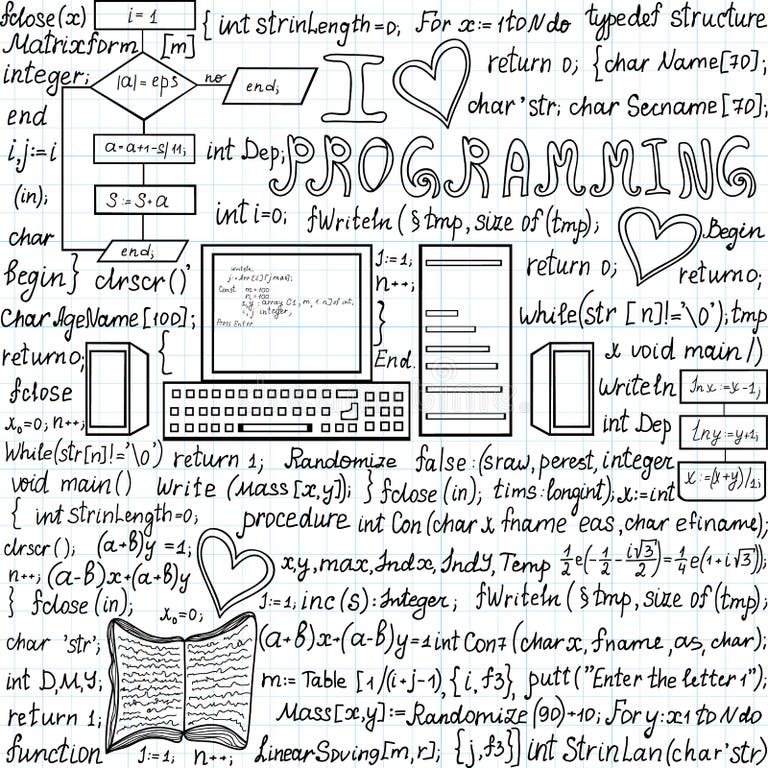 fclose(x) i=1 { int strinLength=0; For x:=1toNdo typedef structure
Matrixform [m]
integer; |a|=eps no end; I return 0; {char Name[70];
end char 'str; char Secname [70];
i,j:=i a=a+1-s/11; int Dep; PROGRAMMING
(in); S:=S+a
int i=0; fWriteln (§tmp, size of (tmp);
char end; Begin
begin} clrscr()' J:=1; return 0; return0;
n++;
Char AgeName [100]; } while(str[n]!='\0');tmp
Const m=100
n=100
i,j integer;
Press Enter
return0; { End. x void main()
fclose writeln Jnx:=x-1;
x₀=0; n++; int Dep Lny:=y+1;
While(str[n]!='\0') return 1; Randomize false:(sraw, perest, integer x:=(x+y)/1;
void main() Write (Mass[x,y]); } fclose (in); tims:longint); x:=int
{ int strinLength=0; procedure int Con(char x, fname eas, char efiname);
clrscr(); (a+b)y=1; xy, max, Jndx, JndY, Temp ½e(-½-i√3/2)=¼e(1+i√3);
n++; (a-b)x+(a+b)y
} fclose (in); J:=1; inc(s):Integer; fWriteln (§tmp, size of (tmp);
x₀=0;
char 'str'; (a+b)x+(a-b)y=1 int Con7 (char x, fname, as, char);
int D,M,Y; m:= Table [1/(i+j-1), {i, f3}, putt ("Enter the letter 1");
return 1; Mass[x,y]:=Randomize (90)+10; For y:x1 to Ndo
function J:=1; n++; LinearSoving[m,r]; {j,f3}] int StrinLan(char'str)